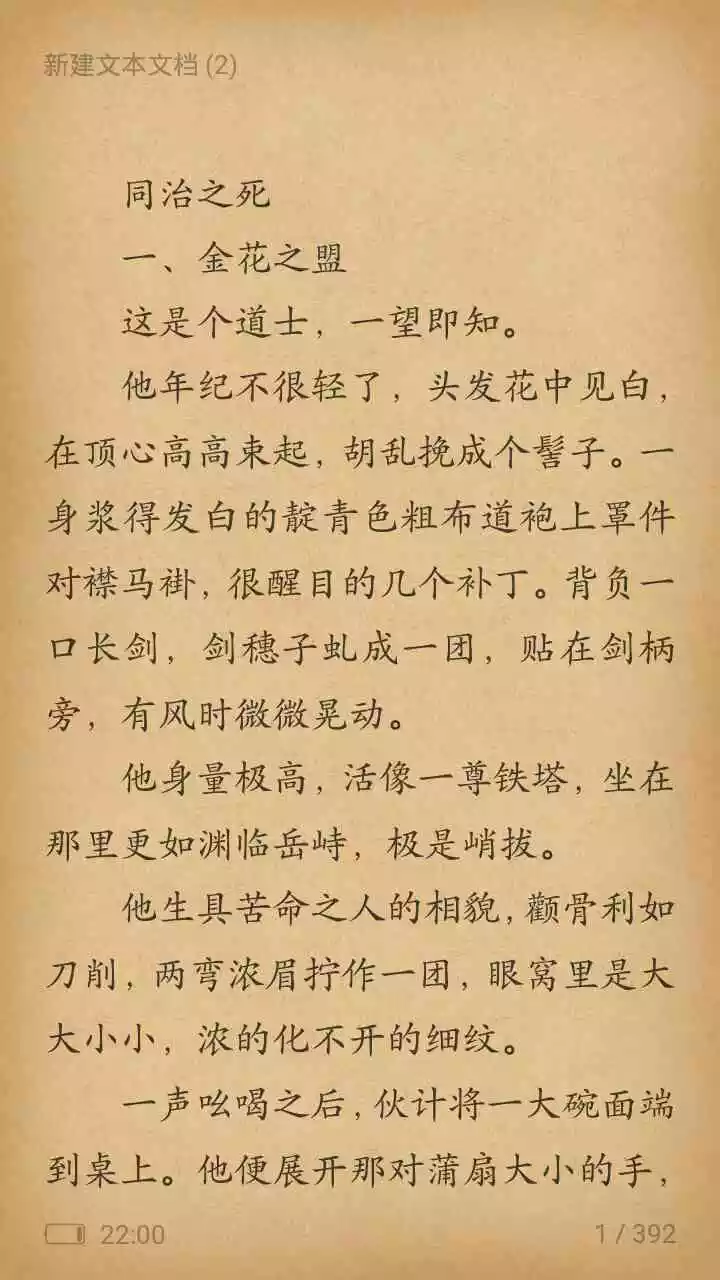 新建文本文档 (2)
同治之死
一、金花之盟
这是个道士，一望即知。
他年纪不很轻了，头发花中见白，
在顶心高高束起，胡乱挽成个髻子。一
身浆得发白的靛青色粗布道袍上罩件
对襟马褂，很醒目的几个补丁。背负一
口长剑，剑穗子虬成一团，贴在剑柄
旁，有风时微微晃动。
他身量极高，活像一尊铁塔，坐在
那里更如渊临岳峙，极是峭拔。
他生具苦命之人的相貌，颧骨利如
刀削，两弯浓眉拧作一团，眼窝里是大
大小小，浓的化不开的细纹。
一声吆喝之后，伙计将一大碗面端
到桌上。他便展开那对蒲扇大小的手，
22:00
1 / 392